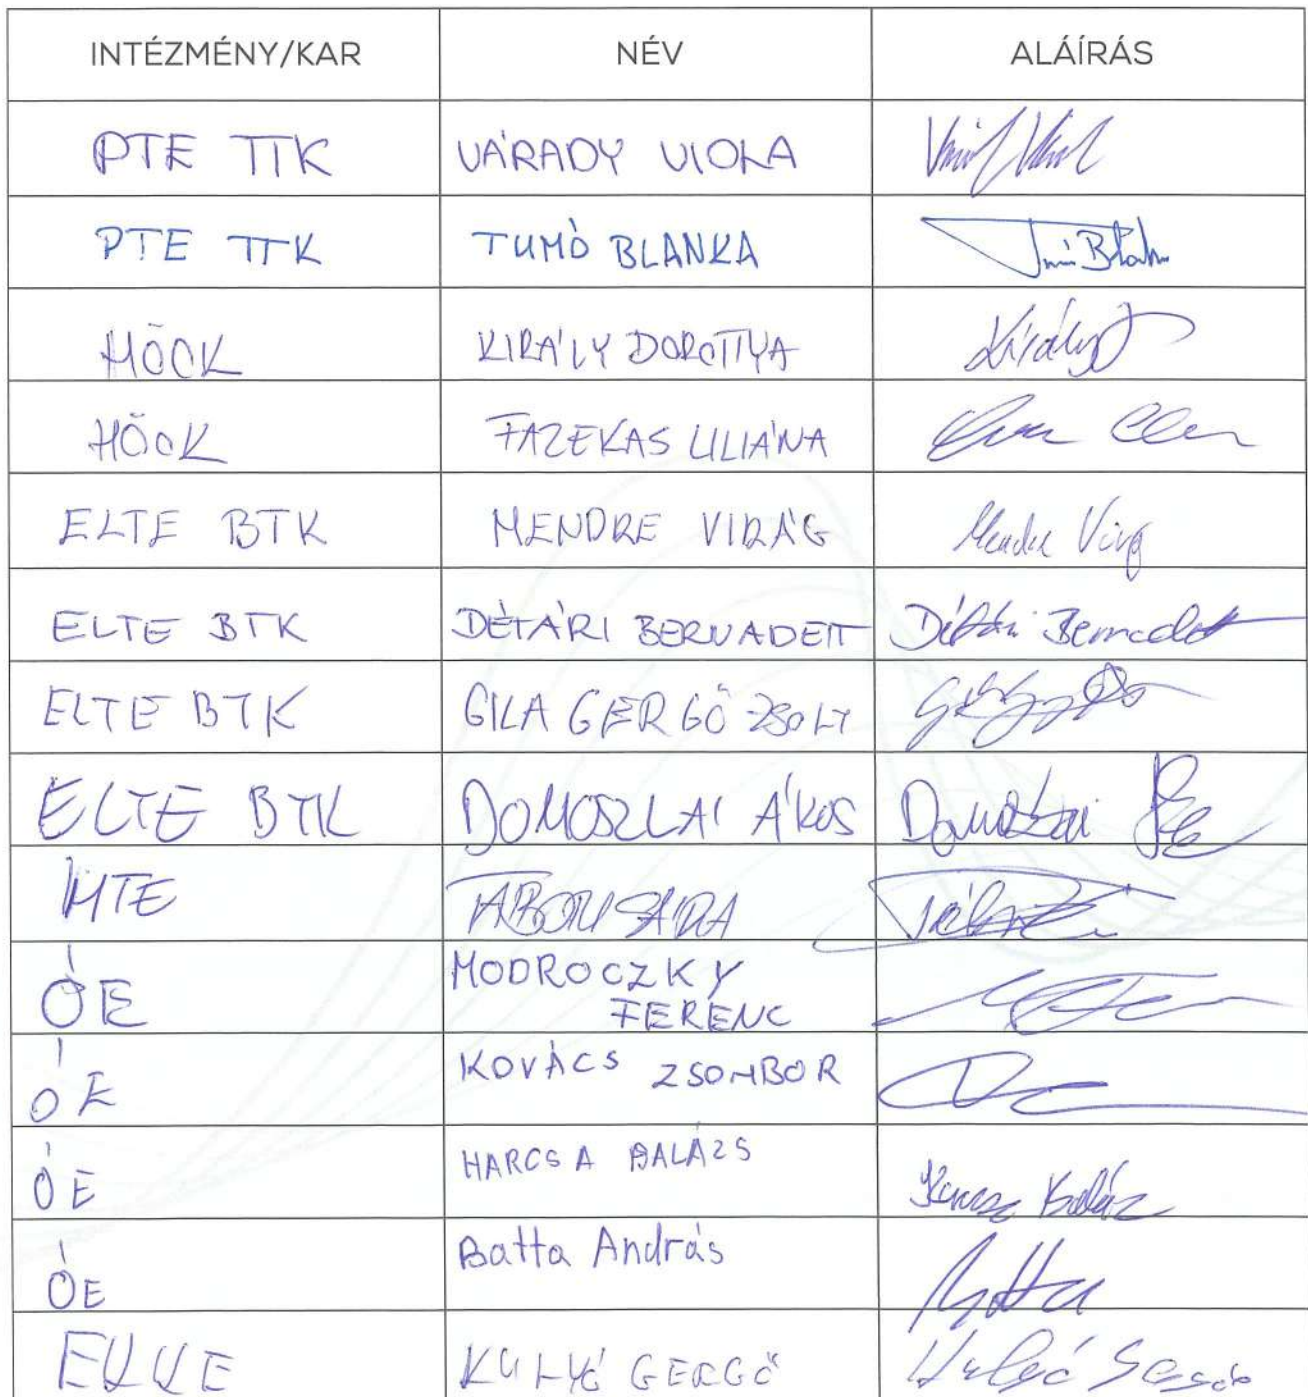 INTÉZMÉNY/KAR NÉV ALÁÍRÁS
PTE TTK VÁRADY VIOLA
PTE TTK TUMÓ BLANKA
HÖOK KIRÁLY DOROTTYA Király D
HÖOK FAZEKAS LILIÁNA
ELTE BTK MENDRE VIRÁG Mendre Virág
ELTE BTK DÉTÁRI BERNADETT Détári Bernadett
ELTE BTK GILA GERGŐ ZSOLT
ELTE BTK DOMOSZLAI ÁKOS Domoszlai
MTE TÁBORI SÁRA
ÓE MODROCZKY
FERENC
ÓE KOVÁCS ZSOMBOR
ÓE HARCSA BALÁZS Harcsa Balázs
ÓE Batta András Batta
EKKE KULYÓ GERGŐ Kulyó Gergő